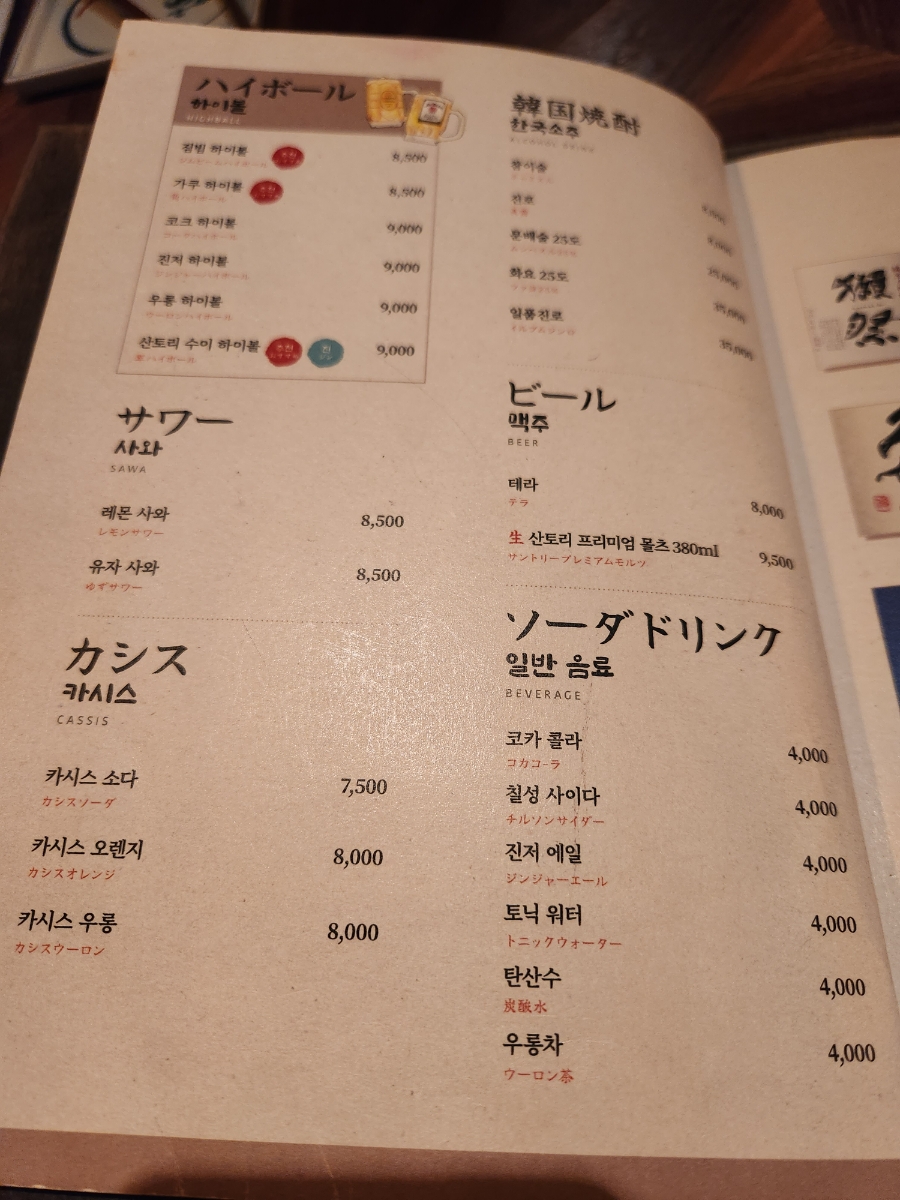 ハイボール
하이볼
HIGHBALL
짐빔 하이볼 추천 8,500
ジムビームハイボール
가쿠 하이볼 추천 8,500
角ハイボール
코크 하이볼 9,000
コークハイボール
진저 하이볼 9,000
ジンジャーハイボール
우롱 하이볼 9,000
ウーロンハイボール
산토리 수이 하이볼 추천 진 9,000
翠ハイボール
サワー
사와
SAWA
레몬 사와 8,500
レモンサワー
유자 사와 8,500
ゆずサワー
カシス
카시스
CASSIS
카시스 소다 7,500
カシスソーダ
카시스 오렌지 8,000
カシスオレンジ
카시스 우롱 8,000
カシスウーロン
韓国焼酎
한국소주
참이슬
진로
문배술 25도
화요 25도
일품진로
35,000
ビール
맥주
BEER
테라 8,000
テラ
生 산토리 프리미엄 몰츠 380ml 9,500
サントリープレミアムモルツ
ソーダドリンク
일반 음료
BEVERAGE
코카 콜라 4,000
コカコーラ
칠성 사이다 4,000
チルソンサイダー
진저 에일 4,000
ジンジャーエール
토닉 워터 4,000
トニックウォーター
탄산수 4,000
炭酸水
우롱차 4,000
ウーロン茶
獺
祭